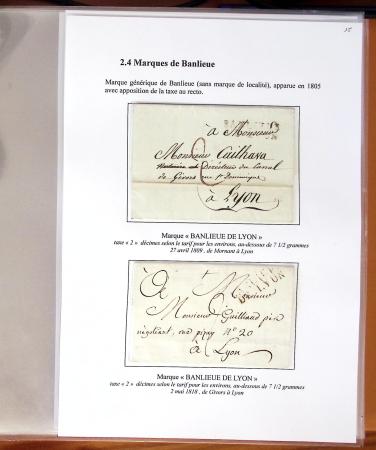 15
2.4 Marques de Banlieue
Marque générique de Banlieue (sans marque de localité), apparue en 1805
avec apposition de la taxe au recto.
à Monsieur
Monsieur Cailhava
Directeur du Canal
de Givors rue St Dominique
à Lyon
Marque « BANLIEUE DE LYON »
taxe « 2 » décimes selon le tarif pour les environs, au-dessous de 7 1/2 grammes
27 avril 1809, de Mornant à Lyon
A Monsieur
Monsieur Guilliaud
négotiant, rue pizay N° 20
à Lyon
Marque « BANLIEUE DE LYON »
taxe « 2 » décimes selon le tarif pour les environs, au-dessous de 7 1/2 grammes
2 mai 1818, de Givors à Lyon